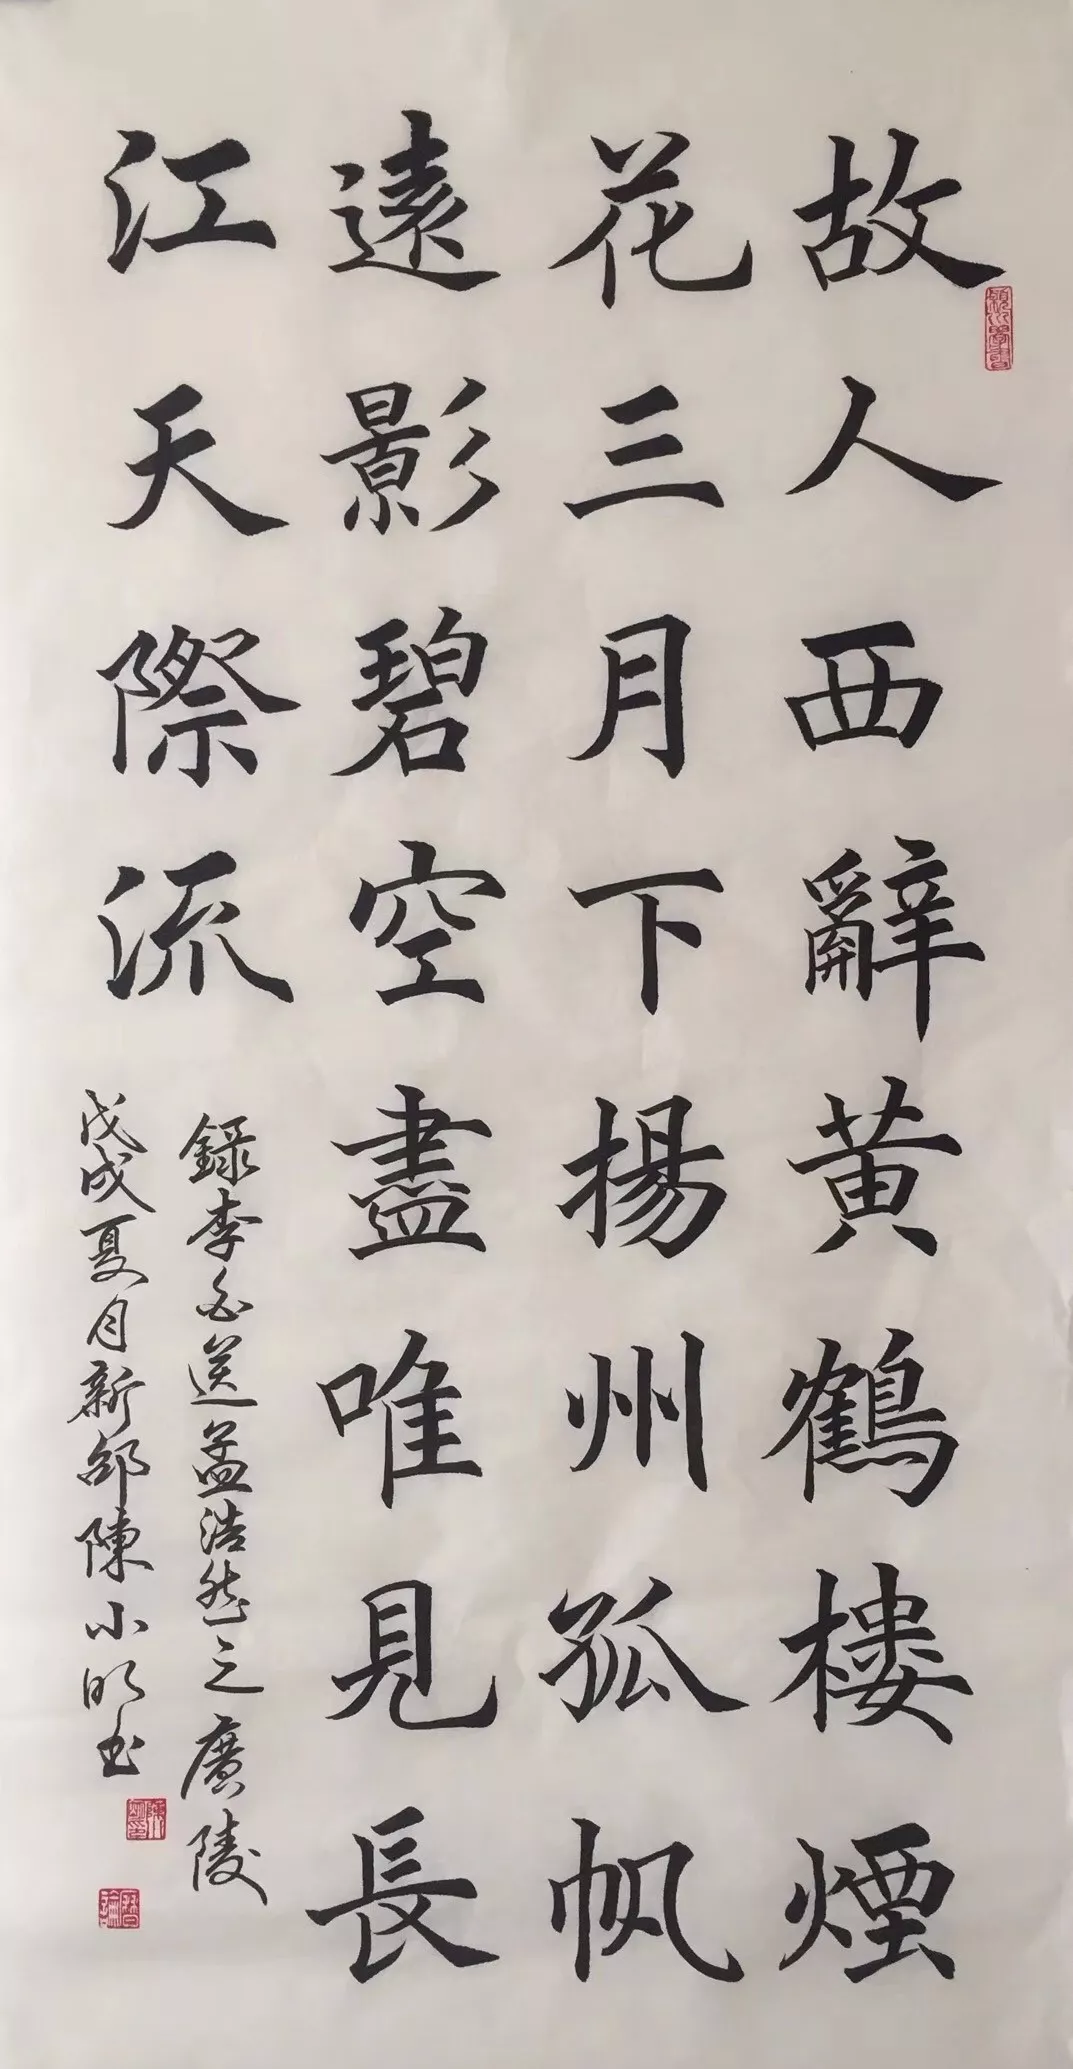 故人西辭黃鶴樓煙
花三月下揚州孤帆
遠影碧空盡唯見長
江天際流
錄李白送孟浩然之廣陵
戊戌夏月新邵陳小明书